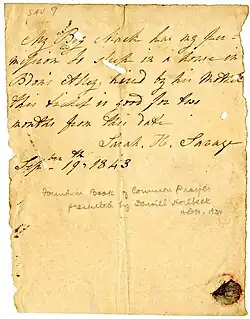 SAV 9
My Boy Mack has my per-
mission to sleep in a house in
Bedon's Alley, hired by his Mother
this ticket is good for two
months from this date
Sarah H. Savage
Sep-ber 19th 1843
Found in Book of Common Prayer
presented by Daniell Horlbeck
1934